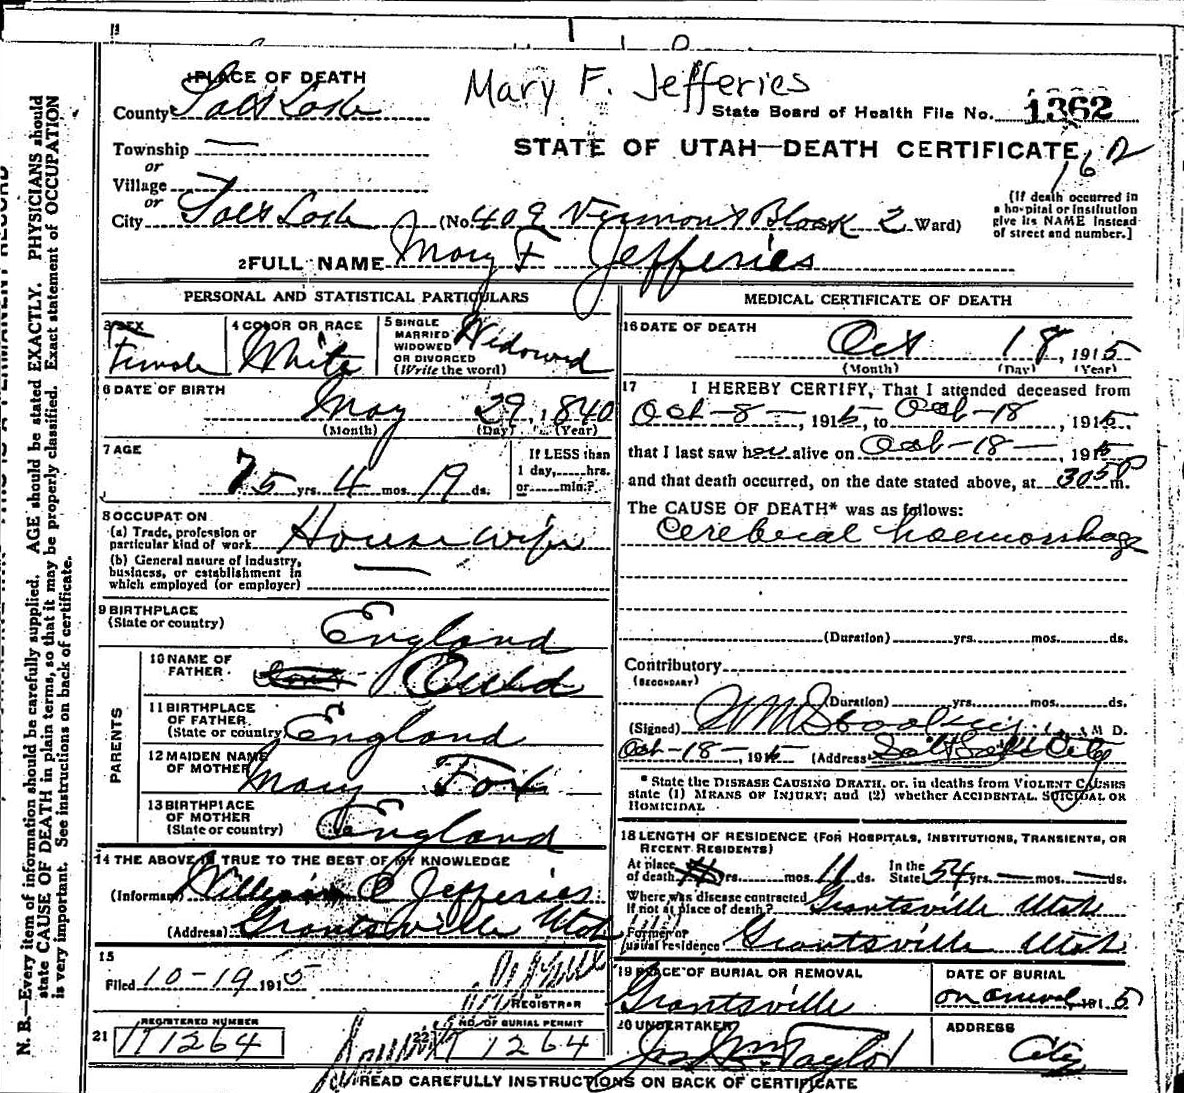 Mary F. Jefferies
1 PLACE OF DEATH
County Salt Lake
State Board of Health File No. 1362
Township —
or
Village
or
STATE OF UTAH—DEATH CERTIFICATE
162
City Salt Lake (No. 409 Vermont Block 2 Ward)
[If death occurred in
a hospital or institution
give its NAME instead
of street and number.]
2 FULL NAME Mary F Jefferies
PERSONAL AND STATISTICAL PARTICULARS
3 SEX
Female
4 COLOR OR RACE
White
5 SINGLE
MARRIED
WIDOWED
OR DIVORCED
(Write the word)
Widowed
6 DATE OF BIRTH
May 29, 1840
(Month) (Day) (Year)
7 AGE
75 yrs. 4 mos. 19 ds.
If LESS than
1 day, hrs.
or min.?
8 OCCUPATION
(a) Trade, profession or
particular kind of work
House wife
(b) General nature of industry,
business, or establishment in
which employed (or employer)
—
9 BIRTHPLACE
(State or country)
England
PARENTS
10 NAME OF
FATHER
11 BIRTHPLACE
OF FATHER
(State or country)
England
12 MAIDEN NAME
OF MOTHER
Mary Fox
13 BIRTHPLACE
OF MOTHER
(State or country)
England
14 THE ABOVE IS TRUE TO THE BEST OF MY KNOWLEDGE
(Informant) William C Jefferies
(Address) Grantsville Utah
15
Filed 10-19 1915
REGISTRAR
21
REGISTERED NUMBER
171264
22
NO. OF BURIAL PERMIT
71264
MEDICAL CERTIFICATE OF DEATH
16 DATE OF DEATH
Oct 18, 1915
(Month) (Day) (Year)
17 I HEREBY CERTIFY, That I attended deceased from
Oct-8-, 1915, to Oct-18, 1915,
that I last saw her alive on Oct-18-, 1915
and that death occurred, on the date stated above, at 305 P m.
The CAUSE OF DEATH* was as follows:
Cerebral haemorrhage
(Duration) yrs. mos. ds.
Contributory
(SECONDARY)
(Duration) yrs. mos. ds.
(Signed) M D.
Oct-18-, 1915 (Address) Salt Lake City
* State the DISEASE CAUSING DEATH, or, in deaths from VIOLENT CAUSES
state (1) MEANS OF INJURY; and (2) whether ACCIDENTAL, SUICIDAL OR
HOMICIDAL
18 LENGTH OF RESIDENCE (FOR HOSPITALS, INSTITUTIONS, TRANSIENTS, OR
RECENT RESIDENTS)
At place
of death yrs. mos. 11 ds.
In the
State 54 yrs. — mos. — ds.
Where was disease contracted
if not at place of death? Grantsville Utah
Former or
usual residence Grantsville Utah
19 PLACE OF BURIAL OR REMOVAL
Grantsville
DATE OF BURIAL
on arrival, 1915
20 UNDERTAKER
Jos Wm Taylor
ADDRESS
City
READ CAREFULLY INSTRUCTIONS ON BACK OF CERTIFICATE
N. B.—Every item of information should be carefully supplied. AGE should be stated EXACTLY. PHYSICIANS should
state CAUSE OF DEATH in plain terms, so that it may be properly classified. Exact statement of OCCUPATION
is very important. See instructions on back of certificate.